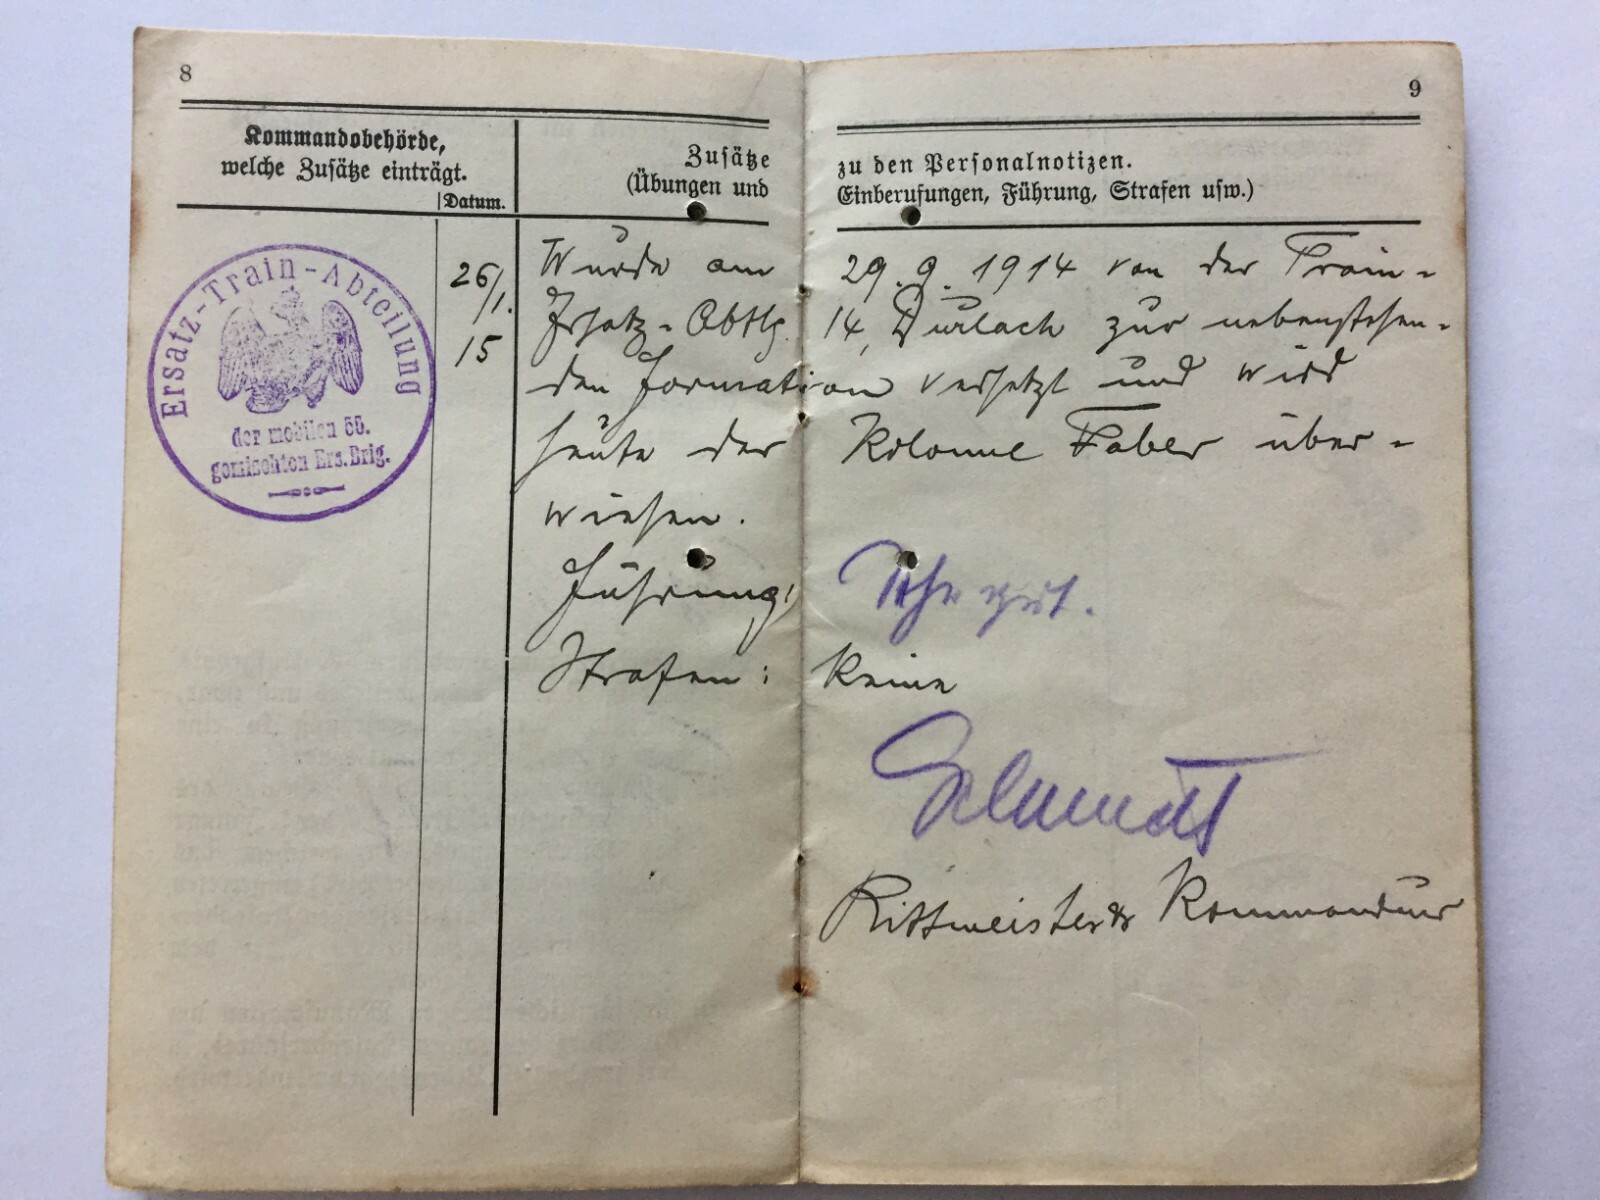 8
Kommandobehörde,
welche Zusätze einträgt.
Datum.
Zusätze
(Übungen und
Ersatz-Train-Abteilung
der mobilen 55.
gemischten Ers. Brig.
26/1.
15
9
zu den Personalnotizen.
Einberufungen, Führung, Strafen usw.)
Wurde am 29.9.1914 von der Train-
Ersatz-Abtlg. 14, Durlach zur nebenstehen-
den Formation versetzt und wird
heute der Kolonne Faber über-
wiesen.
Führung: Sehr gut.
Strafen: Keine
Schmidt
Rittmeister & Kommandeur